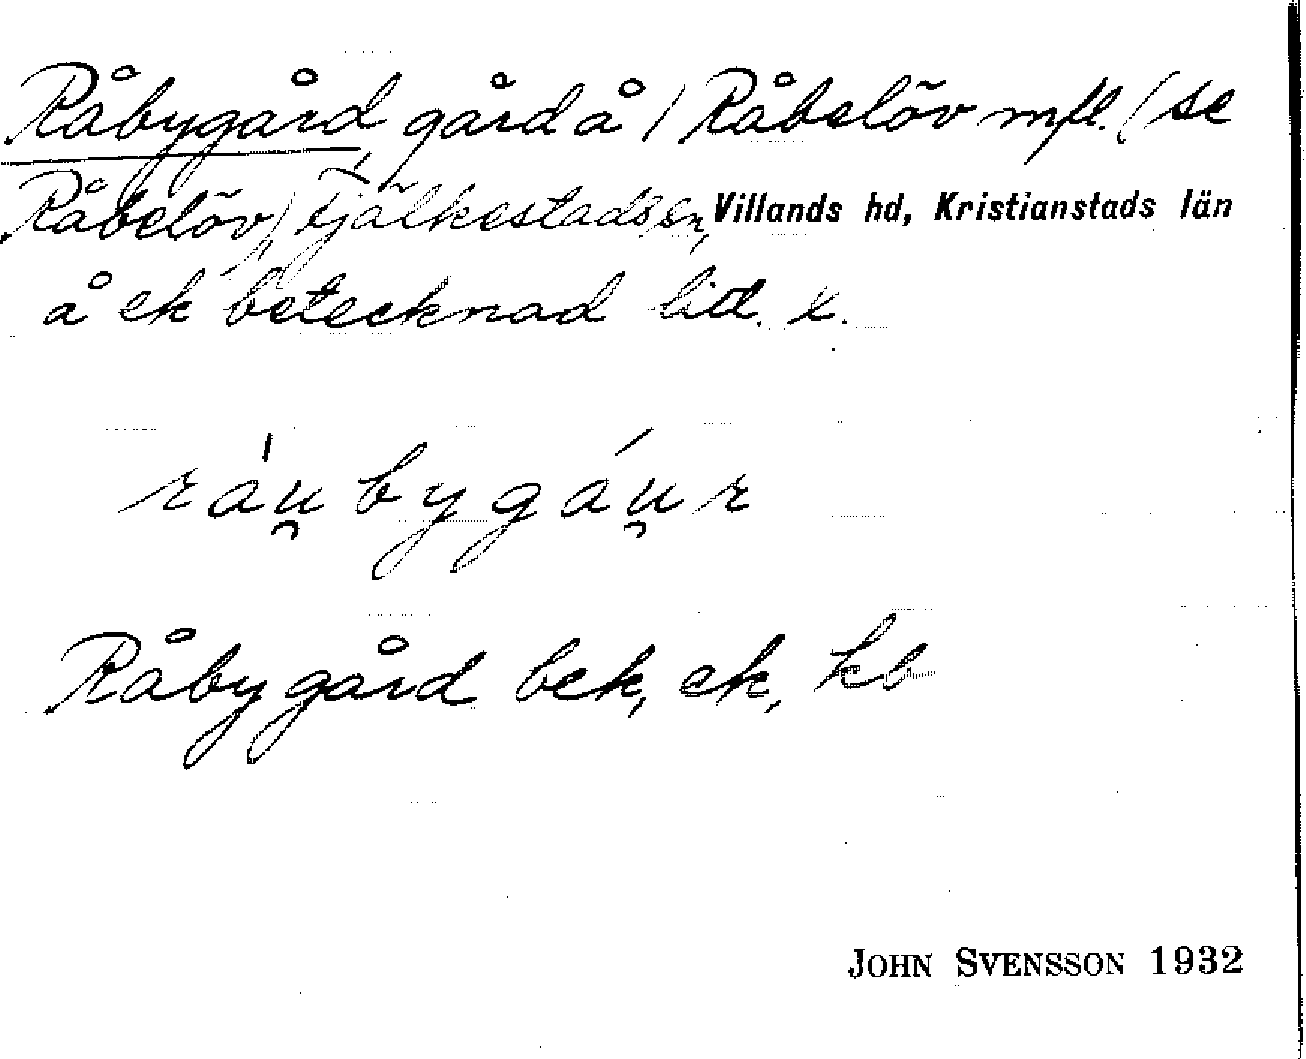 Råbygård gård å 1 Råbelöv mfl. (se
Råbelöv), Fjälkestads sn, Villands hd, Kristianstads län
å ek betecknad litt. x.
ráu̯bygáu̯r
Råbygård bek, ek, kb
JOHN SVENSSON 1932